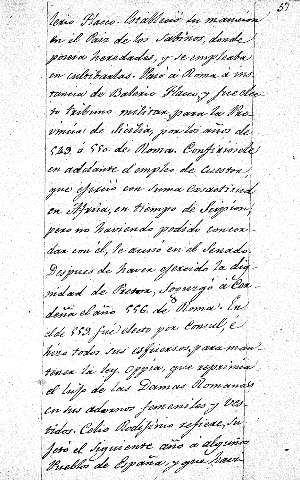 57
lerio Flaco. Establecio su mansion
en el Pais de los Sabinos, donde
poseia heredades, y se empleaba
en cultibarlas. Paso à Roma à ins
tancia de Balerio Flaco, y fue elec
to tribuno militar para la Pro
vincia de Sicilia, por los años de
549 ó 550. de Roma. Confiriosele
en adelante el empleo de Cuestor
que exerció con suma exactitud
en Africa, en tiempo de Scipion,
pero no haviendo podido concor
dar con él, le acusó en el Senado.
Despues de haver exercido la dig
nidad de Pretor, sojuzgó a Cer
deña el año 556. de Roma. En
el de 559. fue electo por Consul, e
hizo todos sus esfuerzos, para man
tener la ley Oppia, que reprimia
el lujo de las Damas Romanas
en sus adornos femeniles y ves
tidos. Celio Rodiginio refiere, su
jetó el siguiente año à algunos
Pueblos de España, y que hace